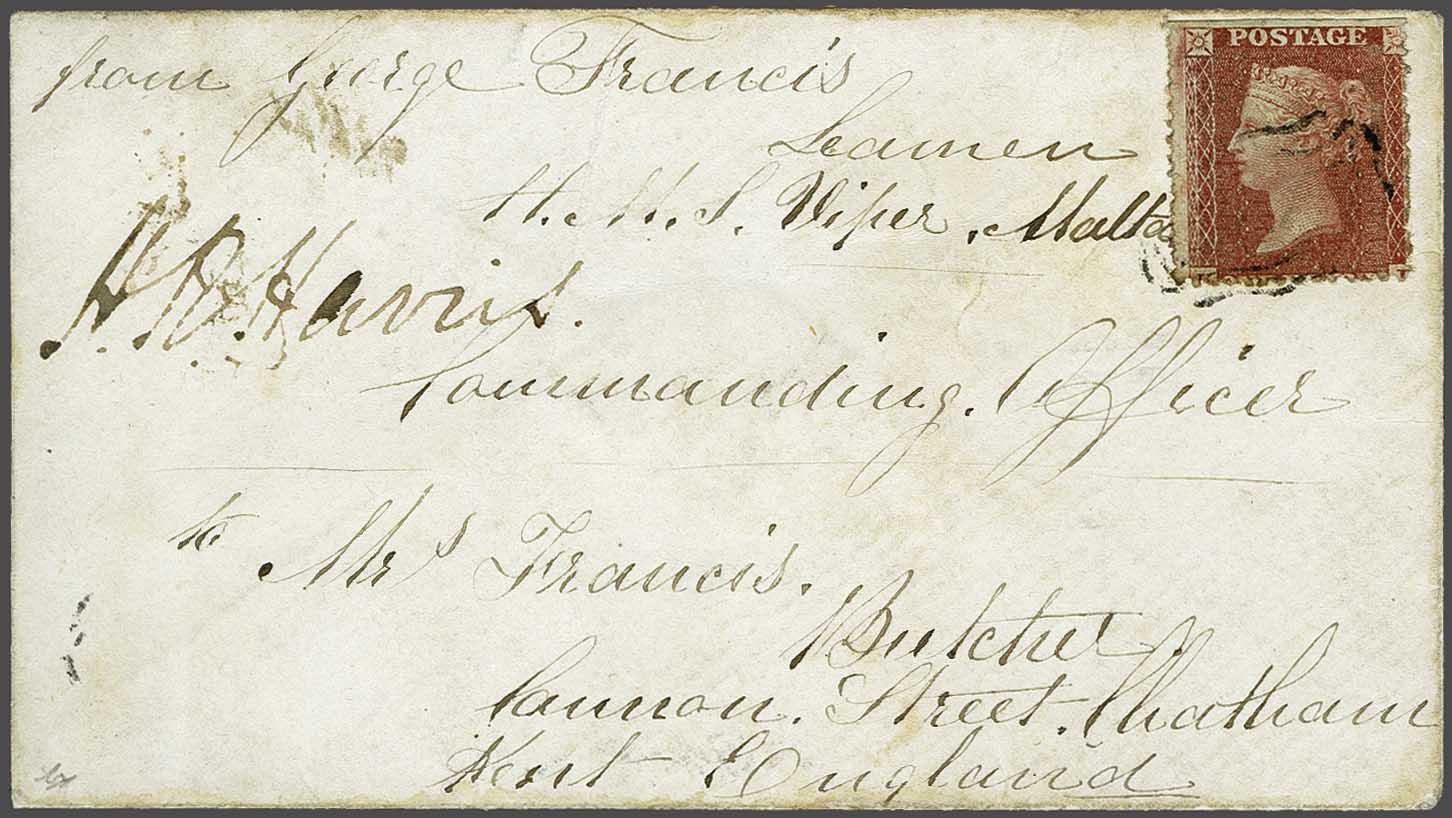 from George Francis
POSTAGE
Seamen
H.M.S. Viper, Malta
H.B. Harris.
Commanding. Officer
to Mrs Francis.
Butcher.
Cannon. Street. Chatham
Kent England